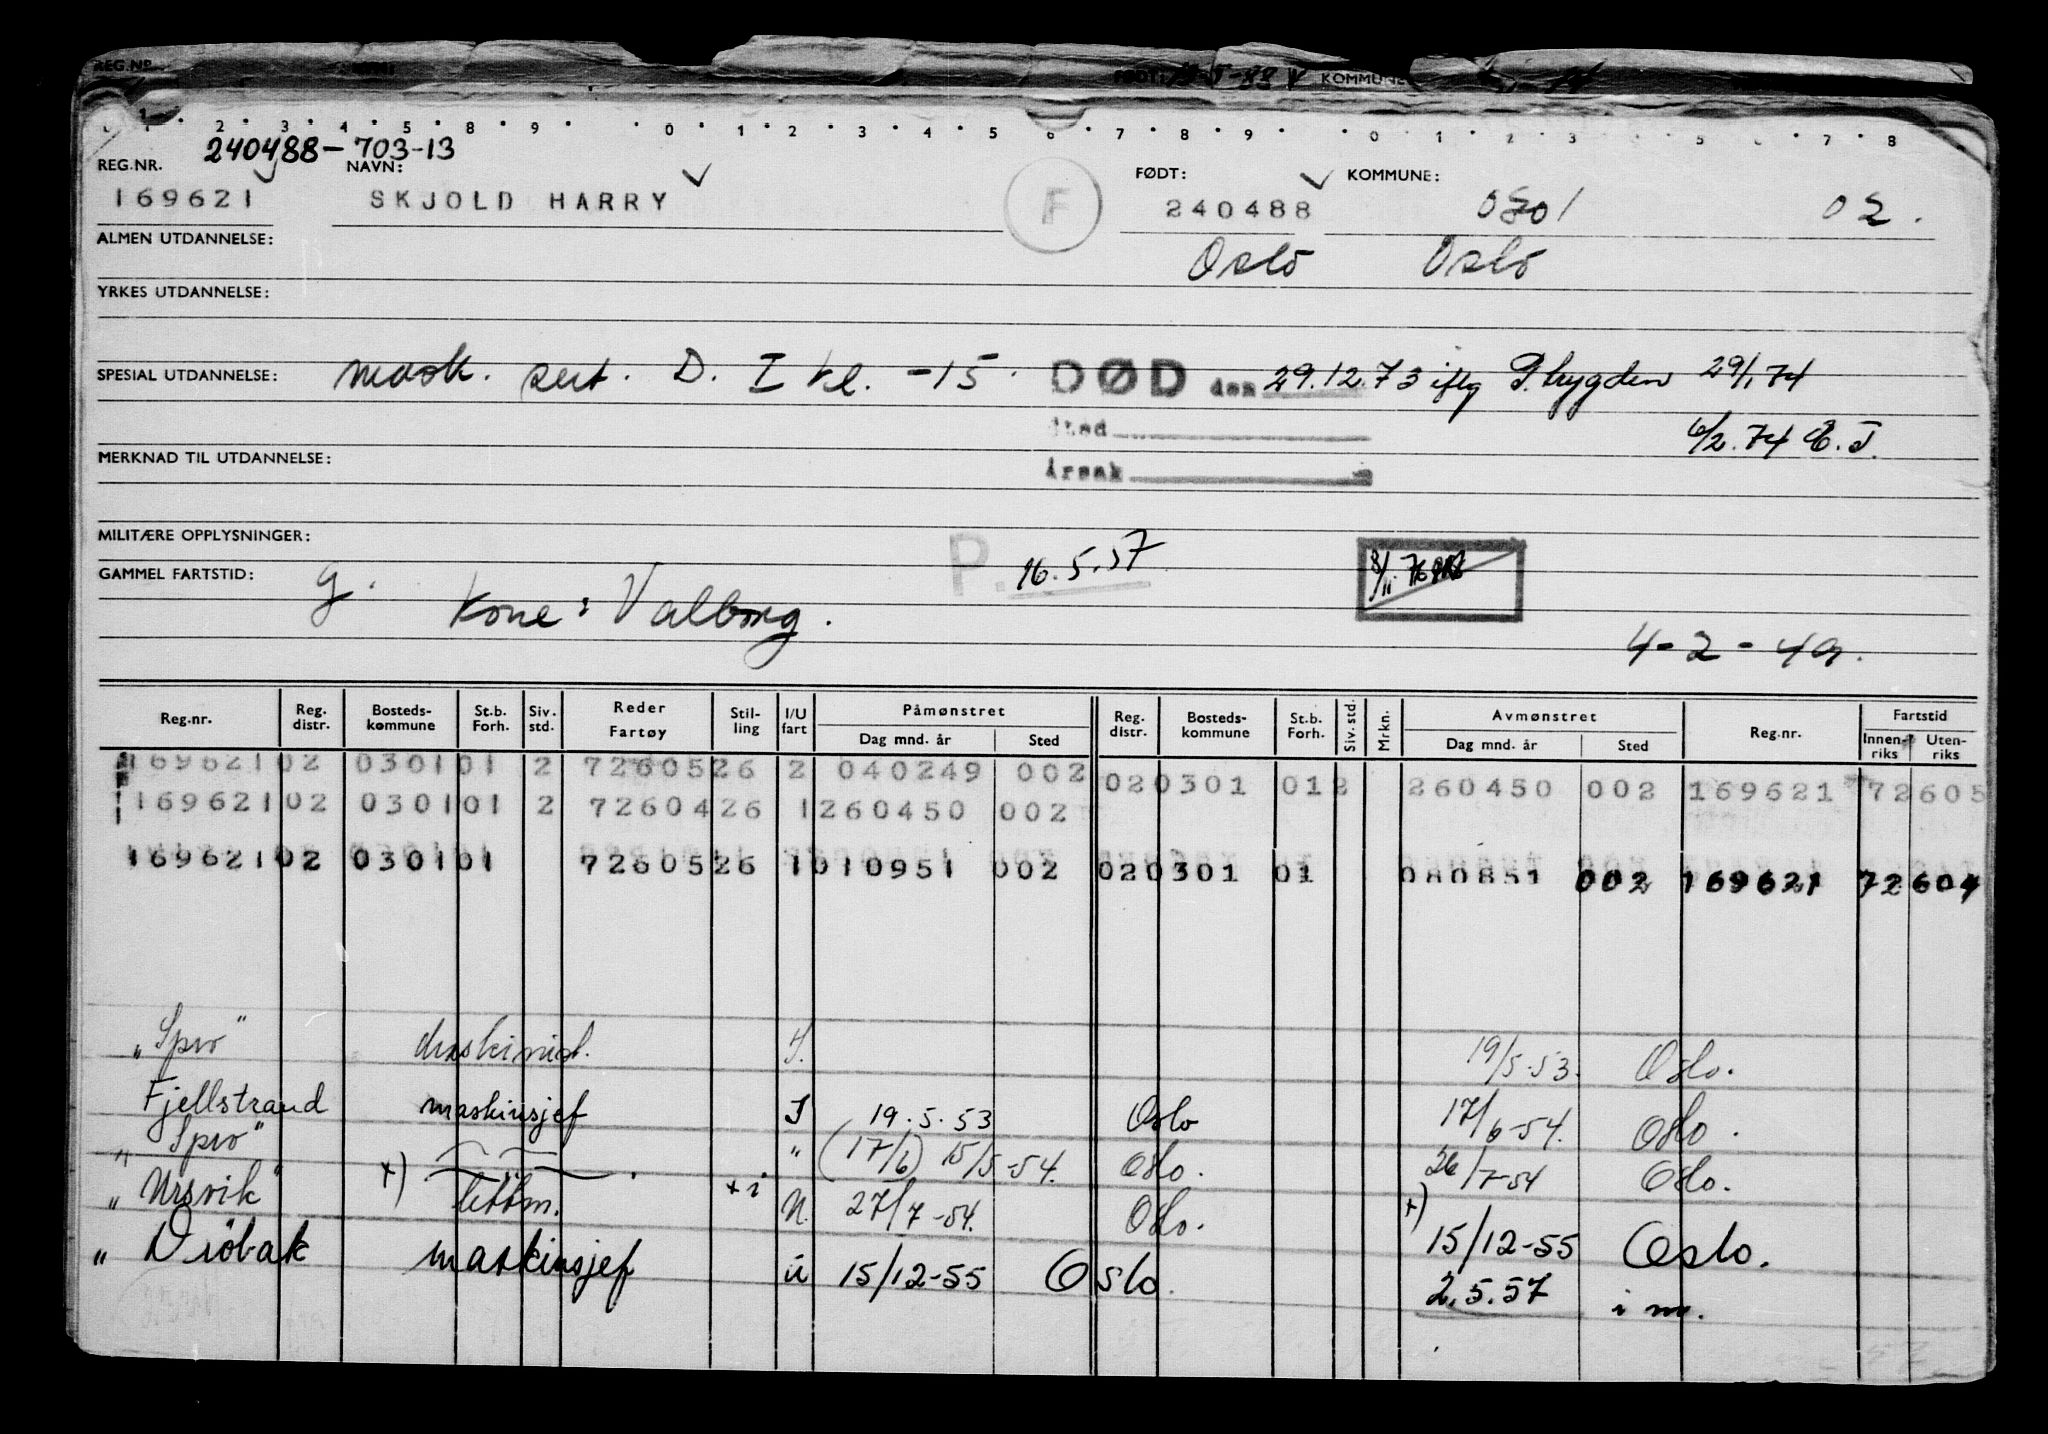 REG.NR. FØDT: KOMMUNE
240488-703-13
REG.NR. NAVN: FØDT: KOMMUNE:
169621 SKJOLD HARRY F 240488 02.
ALMEN UTDANNELSE: Oslo Oslo
YRKES UTDANNELSE:
SPESIAL UTDANNELSE: mask. sert. D. I kl. -15. DØD den 29.12.73 iflg P.trygden 29/1.74
Sted 6/2.74 E.J.
MERKNAD TIL UTDANNELSE: Årsak
MILITÆRE OPPLYSNINGER: P. 16.5.57
GAMMEL FARTSTID: g. Kone: Valborg.
4-2-49.
Reg.nr. Reg. distr. Bosteds-kommune St.b. Forh. Siv. std. Reder Fartøy Stil-ling I/U fart Påmønstret Dag mnd. år Sted Reg. distr. Bosteds-kommune St.b. Forh. Siv. std. Mrkn. Avmønstret Dag mnd. år Sted Reg.nr. Fartstid Innen-riks Uten-riks
169621 02 0301 01 2 72605 26 2 040249 002 02 0301 01 2 260450 002 169621 72605
169621 02 0301 01 2 72604 26 1 260450 002
169621 02 0301 01 72605 26 1 010951 002 02 0301 01 080851 002 169621 72604
"Spro" maskinist. I. 19/5.53. Oslo.
Fjellstrand maskinsjef I 19.5.53 Oslo 17/6-54. Oslo.
"Spro" " (17/6) 15/5-54. Oslo. 26/7-54 Oslo.
"Ursvik" +) lettm. +i U. 27/7-54. Oslo. +) 15/12-55 Oslo.
" Drøbak maskinsjef ü 15/12-55 Oslo. 2.5.57 i m.